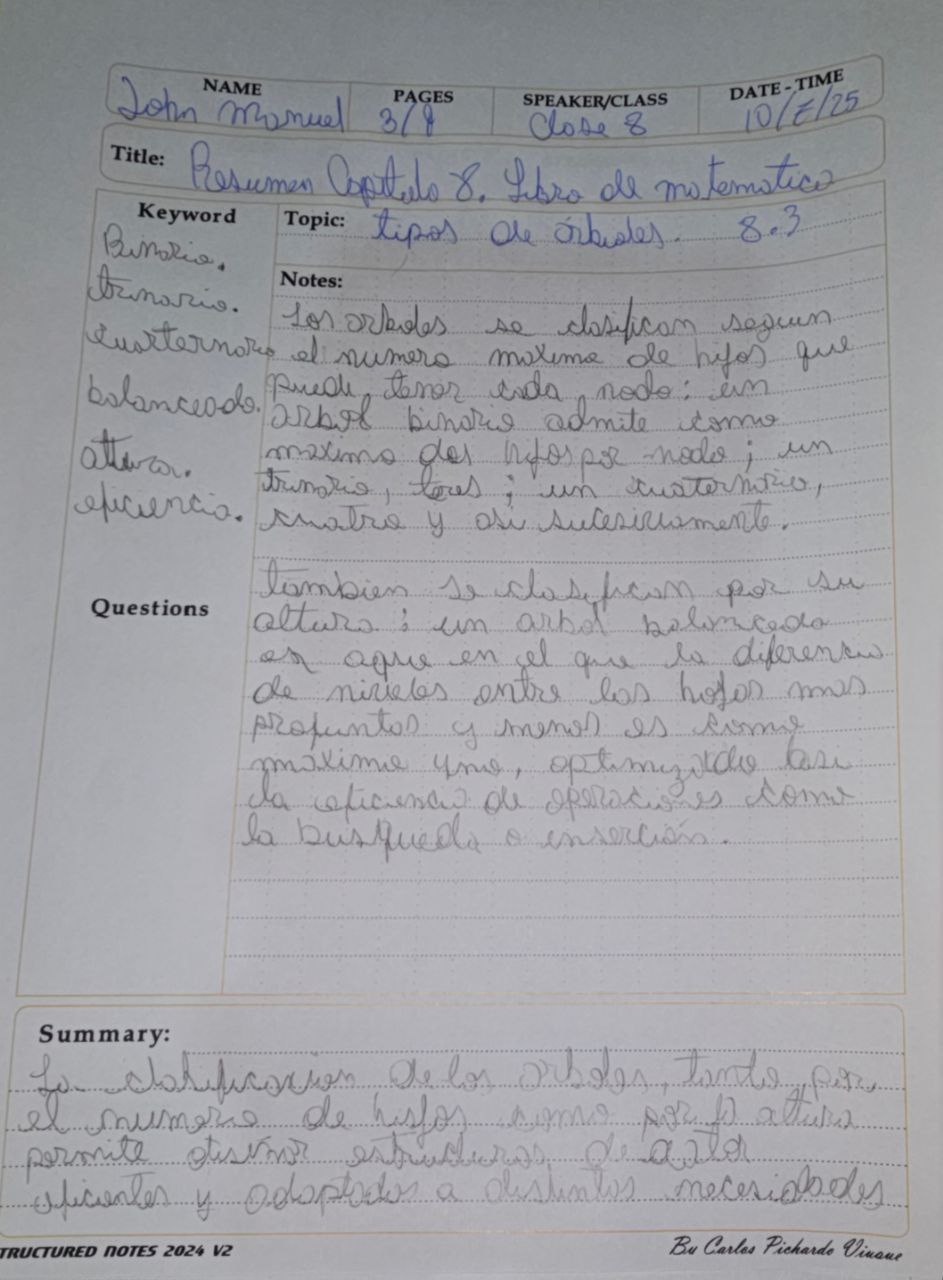 NAME
PAGES
SPEAKER/CLASS
DATE-TIME
John Manuel
3/8
Clase 8
10/E/25
Title: Resumen Capitulo 8. Libro de matematica
Keyword
Topic: tipos de árboles. 8.3
Binario.
trinario.
cuarternario
balanceado.
altura.
eficiencia.
Notes:
Los arboles se clasifican segun
el numero maximo de hijos que
puede tener cada nodo: un
arbol binario admite como
maximo dos hijos por nodo; un
trinario, tres; un cuaternario,
cuatro y asi sucesivamente.
Questions
tambien se clasifican por su
altura: un arbol balanceado
es aque en el que la diferencia
de niveles entre las hojas mas
profuntas y menos es como
maximo uno, optimizado asi
la eficiencia de operaciones como
la busqueda o inserción.
Summary:
La clasificacion de los arboles, tanto por
el numero de hijos como por altura
permite diseñar estructuras de
eficientes y adaptadas a distintas necesidades
TRUCTURED NOTES 2024 V2
By Carlos Pichardo Viuque